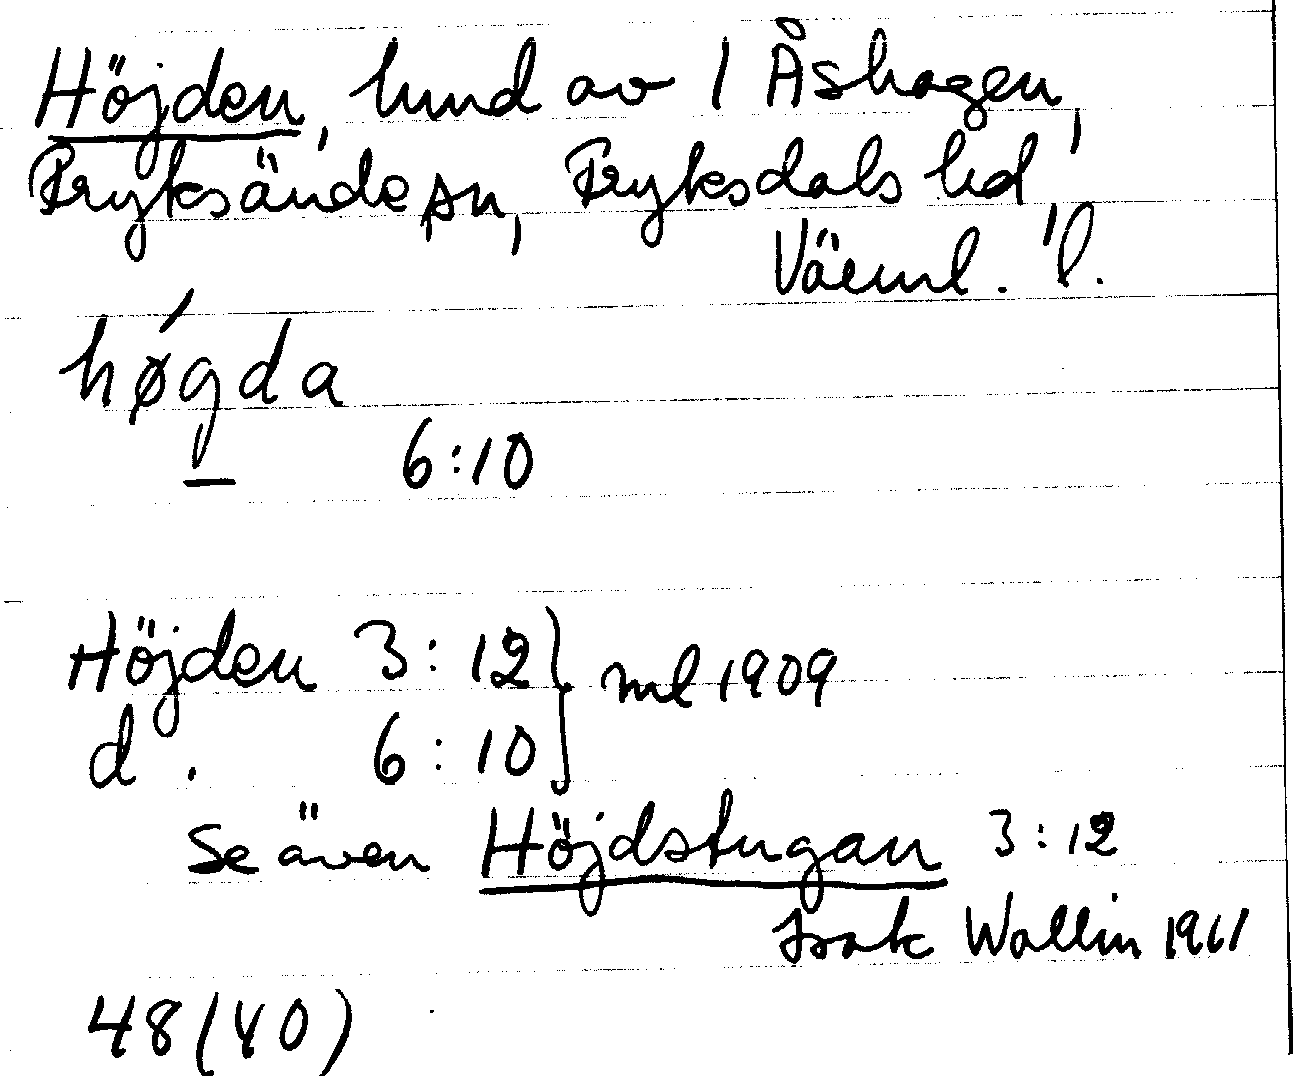 Höjden, lund av 1 Åshagen,
Fryksände sn, Fryksdals hd,
Värml. l.
høgda
6:10
Höjden 3:12 } ml 1909
d. 6:10
Se även Höjdstugan 3:12
Isak Wallin 1961
48(40)